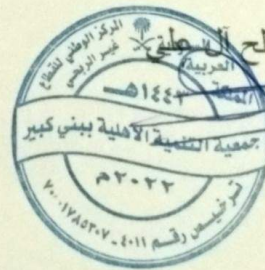 المركز الوطني للقطاع
غير الربحي
العربية
١٤٤٢هـ
جمعية التنمية الأهلية ببني كبير
٢٠٢٢م
ترخيص رقم ٤٠١١ - ٧٠٠٠١٧٨٥٣٠٧